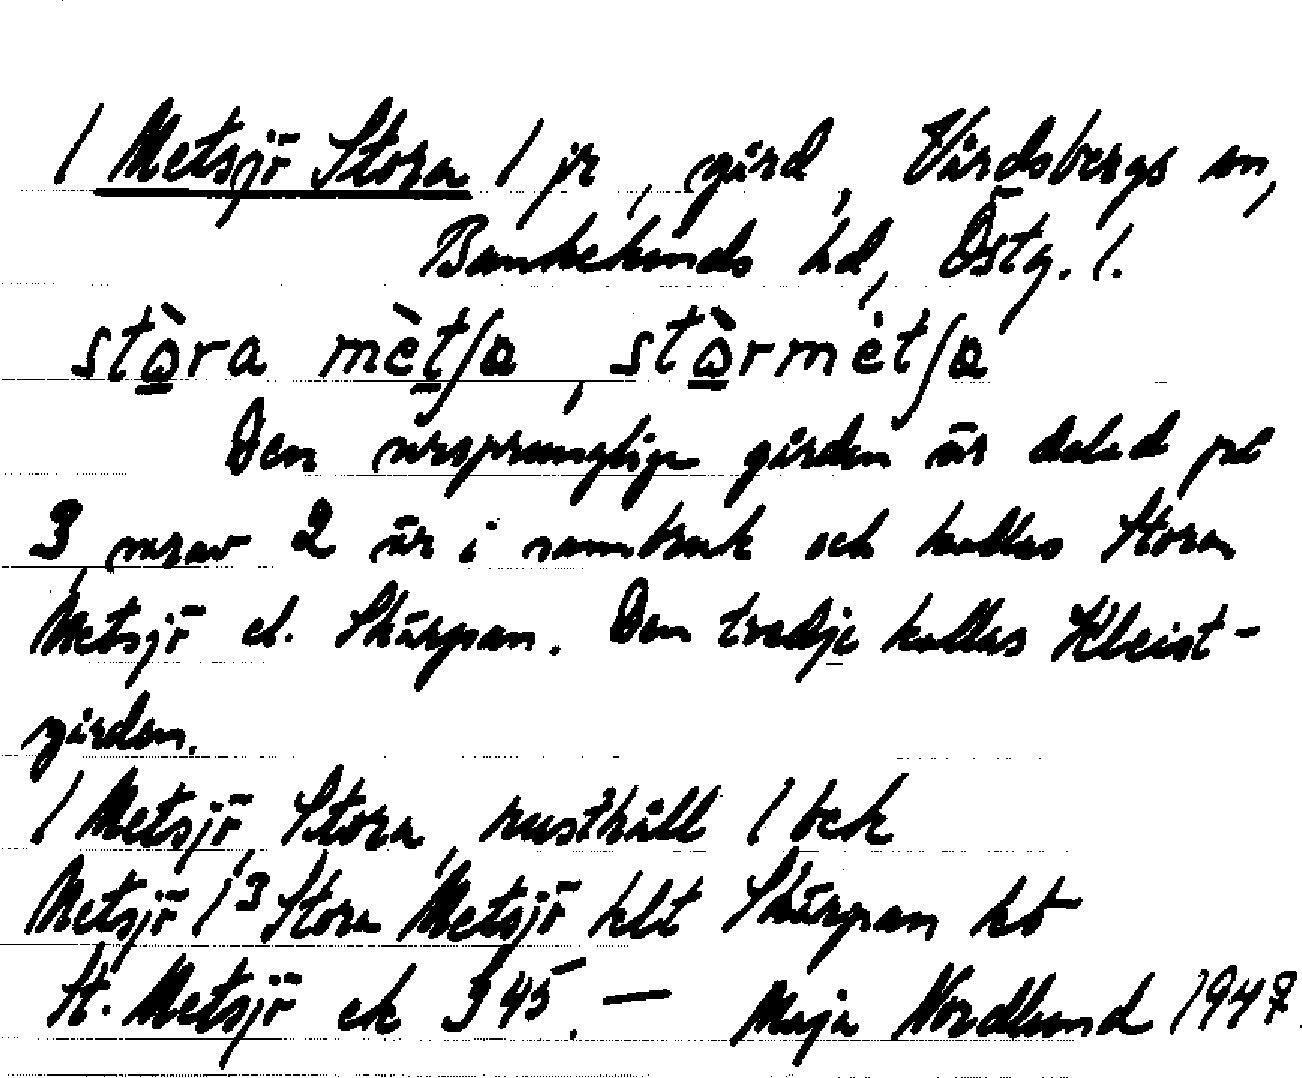 / Metsjö Stora / jr, gård, Vårdsbergs sn,
Bankekinds hd, Östg. l.
stò̱ra mèt̲ʃɷ, stò̱rmètʃɷ
Den ursprunglige gården är delad på
3, varav 2 är i sambruk och kallas Stora
Metsjö el. Skärpan. Den tredje kallas Kleist-
gården.
/ Metsjö, Stora, rusthåll / bek
Metsjö / 3 Stora Metsjö klt Skärpan kb
St. Metsjö ek 345. — Maja Nordlund 1947.